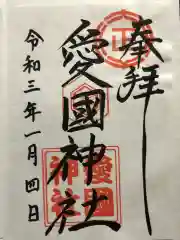 奉拝
愛國神社
愛國神社
令和三年一月四日